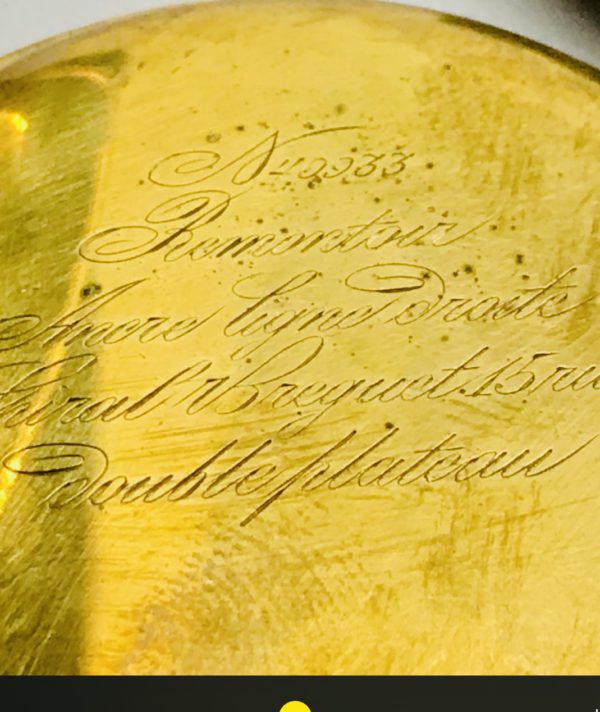 N 49933
Remontoir
Ancre ligne droite
Spiral Breguet 15 ru
double plateau